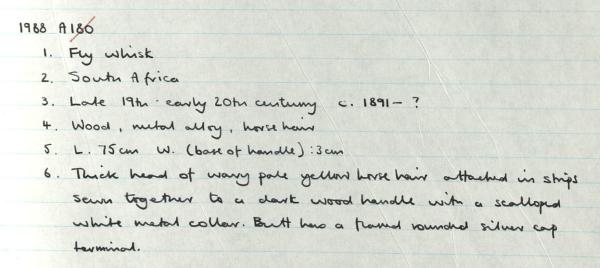 1988 A180
1. Fly whisk
2. South Africa
3. Late 19th - early 20th century c. 1891 - ?
4. Wood, metal alloy, horse hair
5. L. 75cm W. (base of handle) : 3cm
6. Thick head of wavy pale yellow horse hair attached in strips
sewn together to a dark wood handle with a scalloped
white metal collar. Butt has a flared rounded silver cap
terminal.